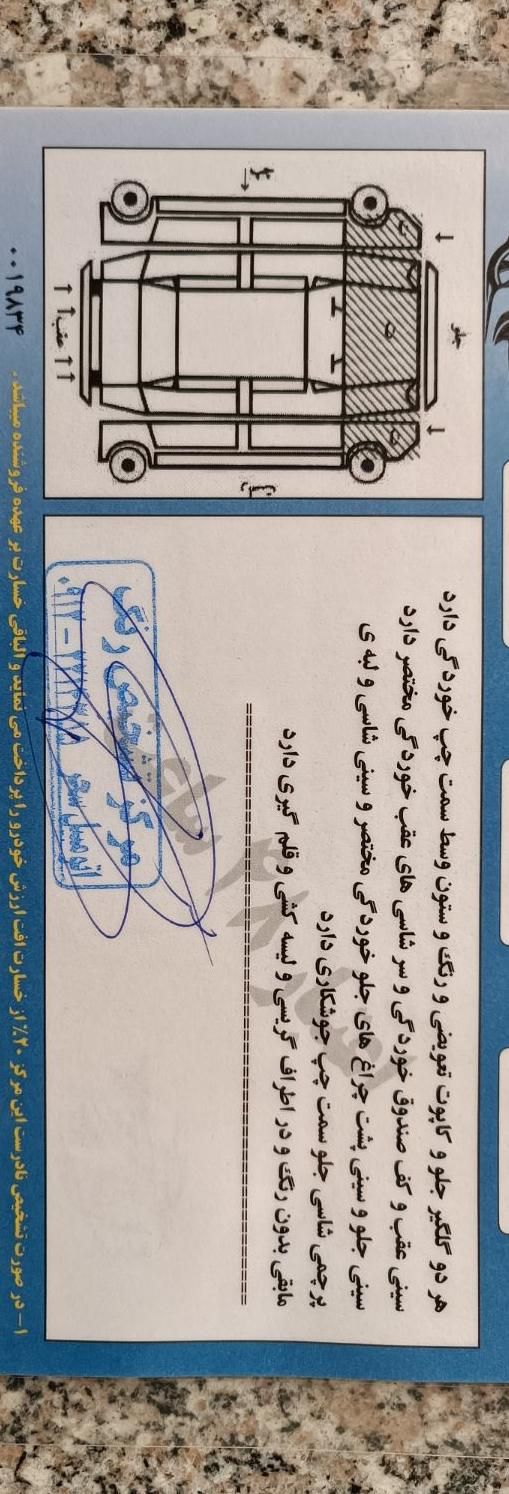 جلو
عقب
۰۰۱۹۸۳۴
هر دو گلگیر جلو و کاپوت تعویضی و رنگ و ستون وسط سمت چپ خوردگی دارد
سینی عقب و کف صندوق خوردگی و سر شاسی های عقب خوردگی مختصر دارد
سینی جلو و سینی پشت چراغ های جلو خوردگی مختصر و سینی شاسی و لبه ی
پرچمی شاسی جلو سمت چپ جوشکاری دارد
مابقی بدون رنگ و در اطراف گریسی و لیسه کشی و قلم گیری دارد
اعتبار ۴۸ ساعت
مرکز تشخیص رنگ
اتومبیل
۱- در صورت تشخیص نادرست این مرکز ۲۰٪ از خسارت افت ارزش خودرو را پرداخت می نماید و الباقی خسارت بر عهده فروشنده میباشد.